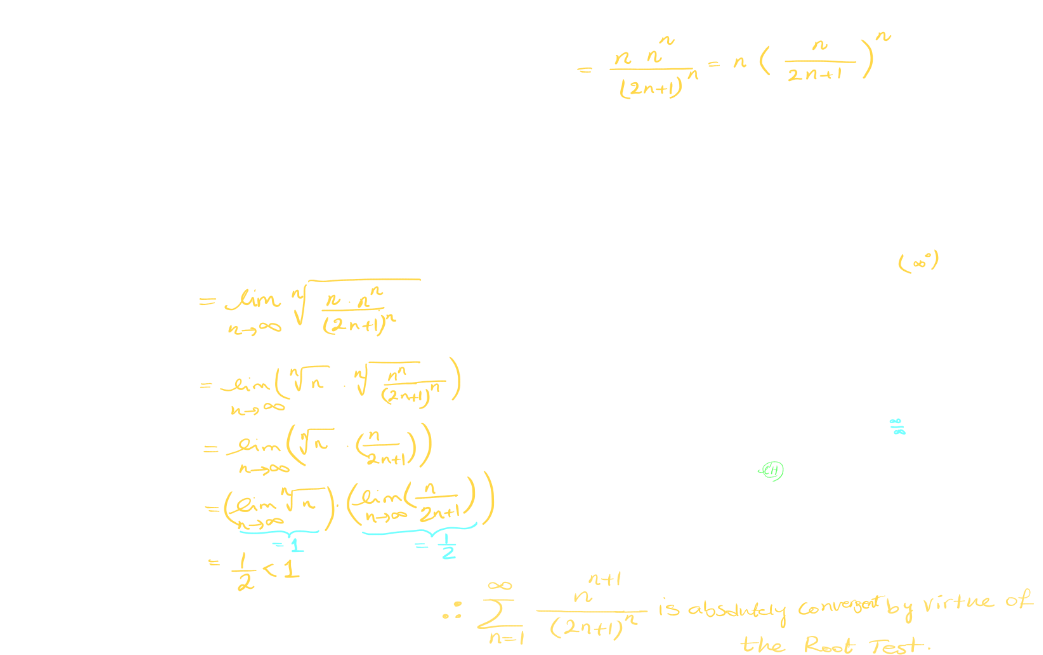 = n n^n / (2n+1)^n = n ( n / 2n+1 )^n
(∞^0)
= lim n→∞ ⁿ√( n · n^n / (2n+1)^n )
= lim n→∞ ( ⁿ√n · ⁿ√( n^n / (2n+1)^n ) )
∞/∞
= lim n→∞ ( ⁿ√n · ( n / 2n+1 ) )
= ( lim n→∞ ⁿ√n ) · ( lim n→∞ ( n / 2n+1 ) )
= 1 = 1/2
= 1/2 < 1
∴ ∑ n=1 ∞ n^{n+1} / (2n+1)^n is absolutely convergent by virtue of
the Root Test.